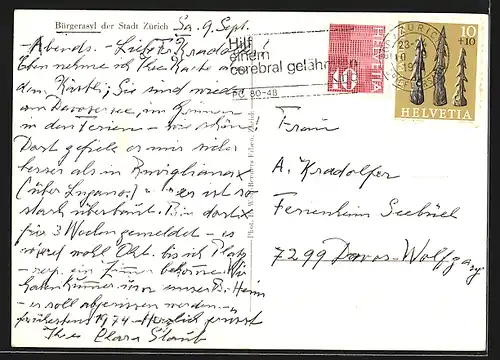 Bürgerasyl der Stadt Zürich
Sa. 9. Sept.
Abends. - Liebe Kradolfer!
Eben nehme ich Ihre Karte aus
dem Kästli; Sie sind wieder
am Davosersee, im Grünen
in den Ferien - wie schön!
Dort gefiele es mir sicher
besser als in Ruvigliana
(über Lugano.) es ist so
stark überbaut. Bin dort
für 3 Wochen gemeldet - es
wird wohl Okt. bis ich Platz
- resp. ein Zimmer bekomme. Wir
haben Kummer um unser Heim
- es soll abgerissen werden -
frühestens 1974 - Herzlich grüsst
Ihre Clara Staub
Hilf
einem
cerebral gelähmten
PC 80-48
HELVETIA
10
ZÜRICH
10
+10
HELVETIA
Frau
A. Kradolfer
Ferienheim Seebüel
7299 Davos-Wolfgang